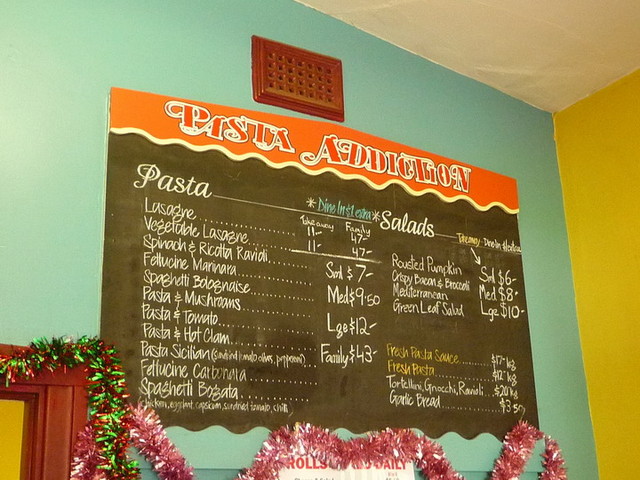 PASTA ADDICTION
Pasta
* Dine In $1 extra *
Takeaway Family
Lasagne 11- 47-
Vegetable Lasagne 11- 47-
Spinach & Ricotta Ravioli
Fettucine Marinara
Spaghetti Bolognaise
Pasta & Mushrooms
Pasta & Tomato
Pasta & Hot Clam
Pasta Sicilian (sundried tomato, olives, pepperoni)
Fettucine Carbonara
Spaghetti Bogata
chicken, eggplant, capsicum, sundried tomato, chilli
Sml $7-
Med $9.50
Lge $12-
Family $43-
Salads
Takeaway Dine In
Roasted Pumpkin
Crispy Bacon & Broccoli
Mediterranean
Green Leaf Salad
Sml $6-
Med $8-
Lge $10-
Fresh Pasta Sauce $17- kg
Fresh Pasta $12- kg
Tortellini, Gnocchi, Ravioli $20 kg
Garlic Bread $3.50
ROLLS DAILY